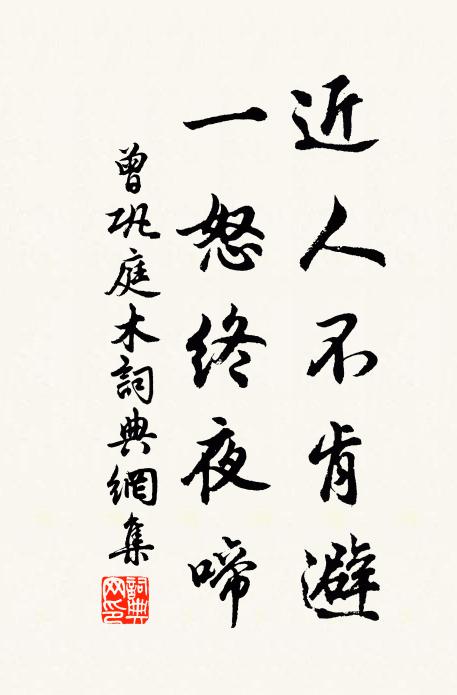 近人不肯避
一怒终夜啼
曾巩庭木詞典網集
詞典网印